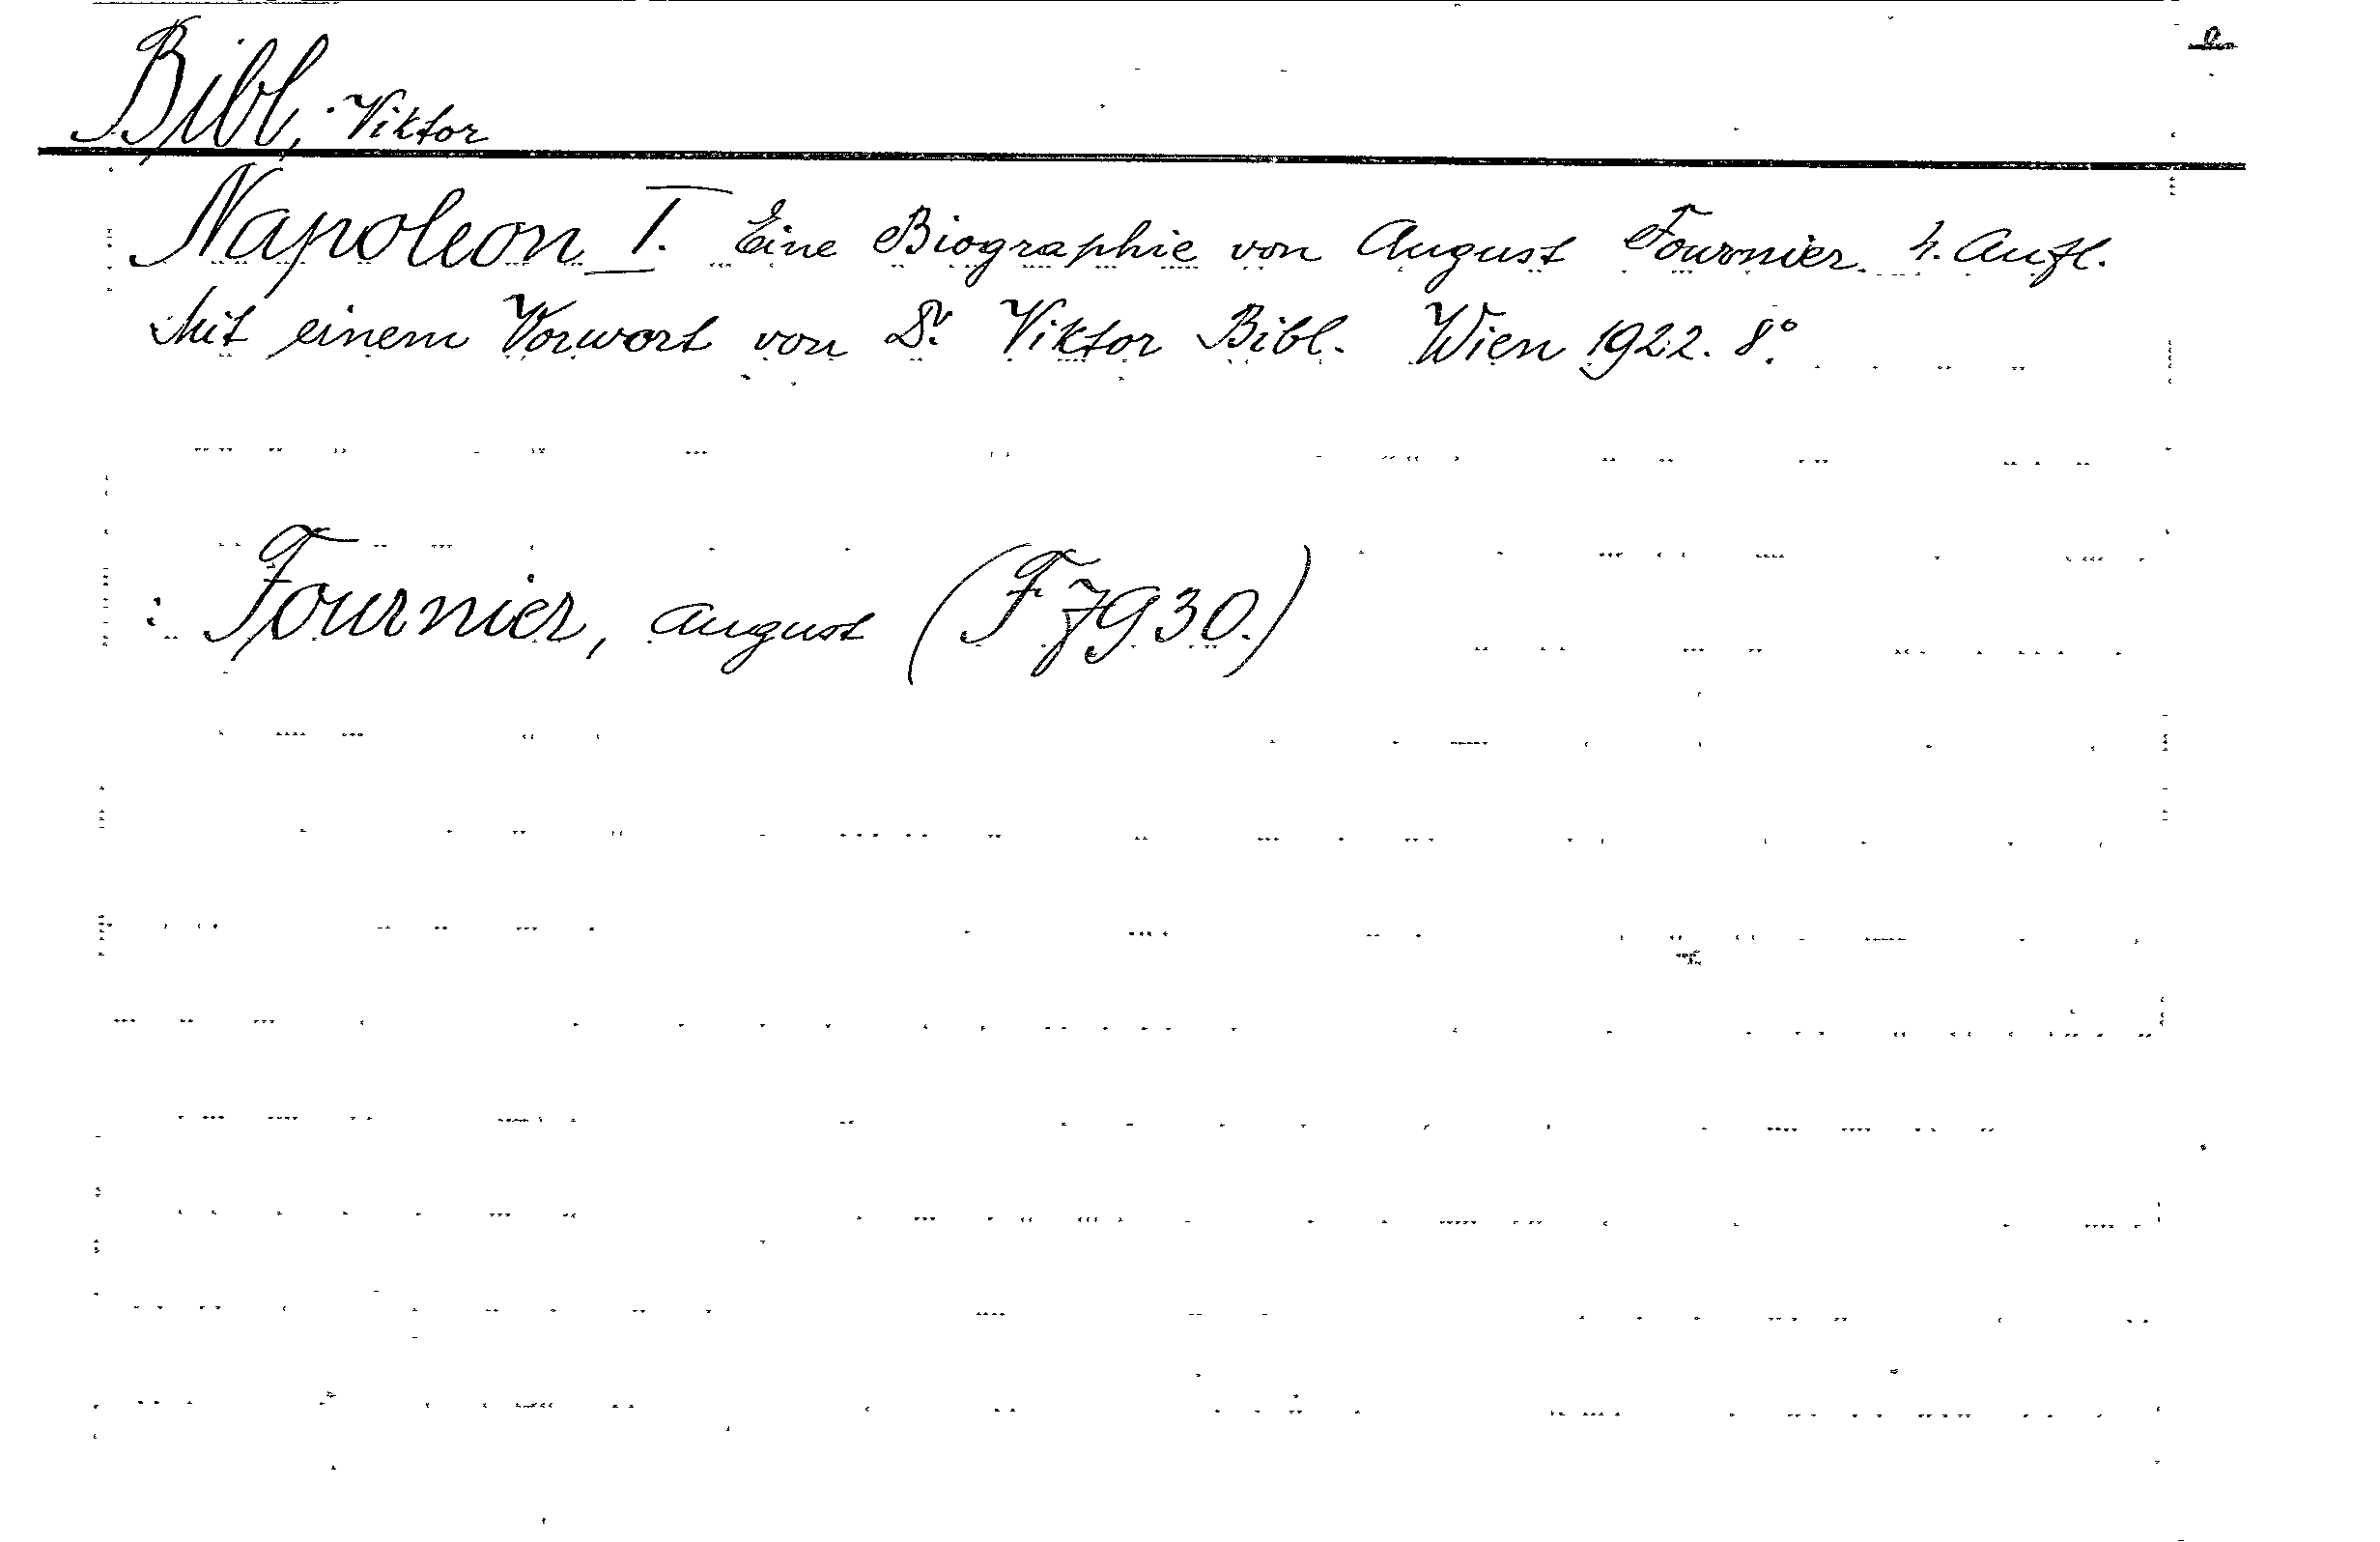 Bibl, Viktor
Napoleon I. Eine Biographie von August Fournier. 4. Aufl.
Mit einem Vorwort von Dr. Viktor Bibl. Wien 1922. 8°.
: Fournier, August (F 7930.)